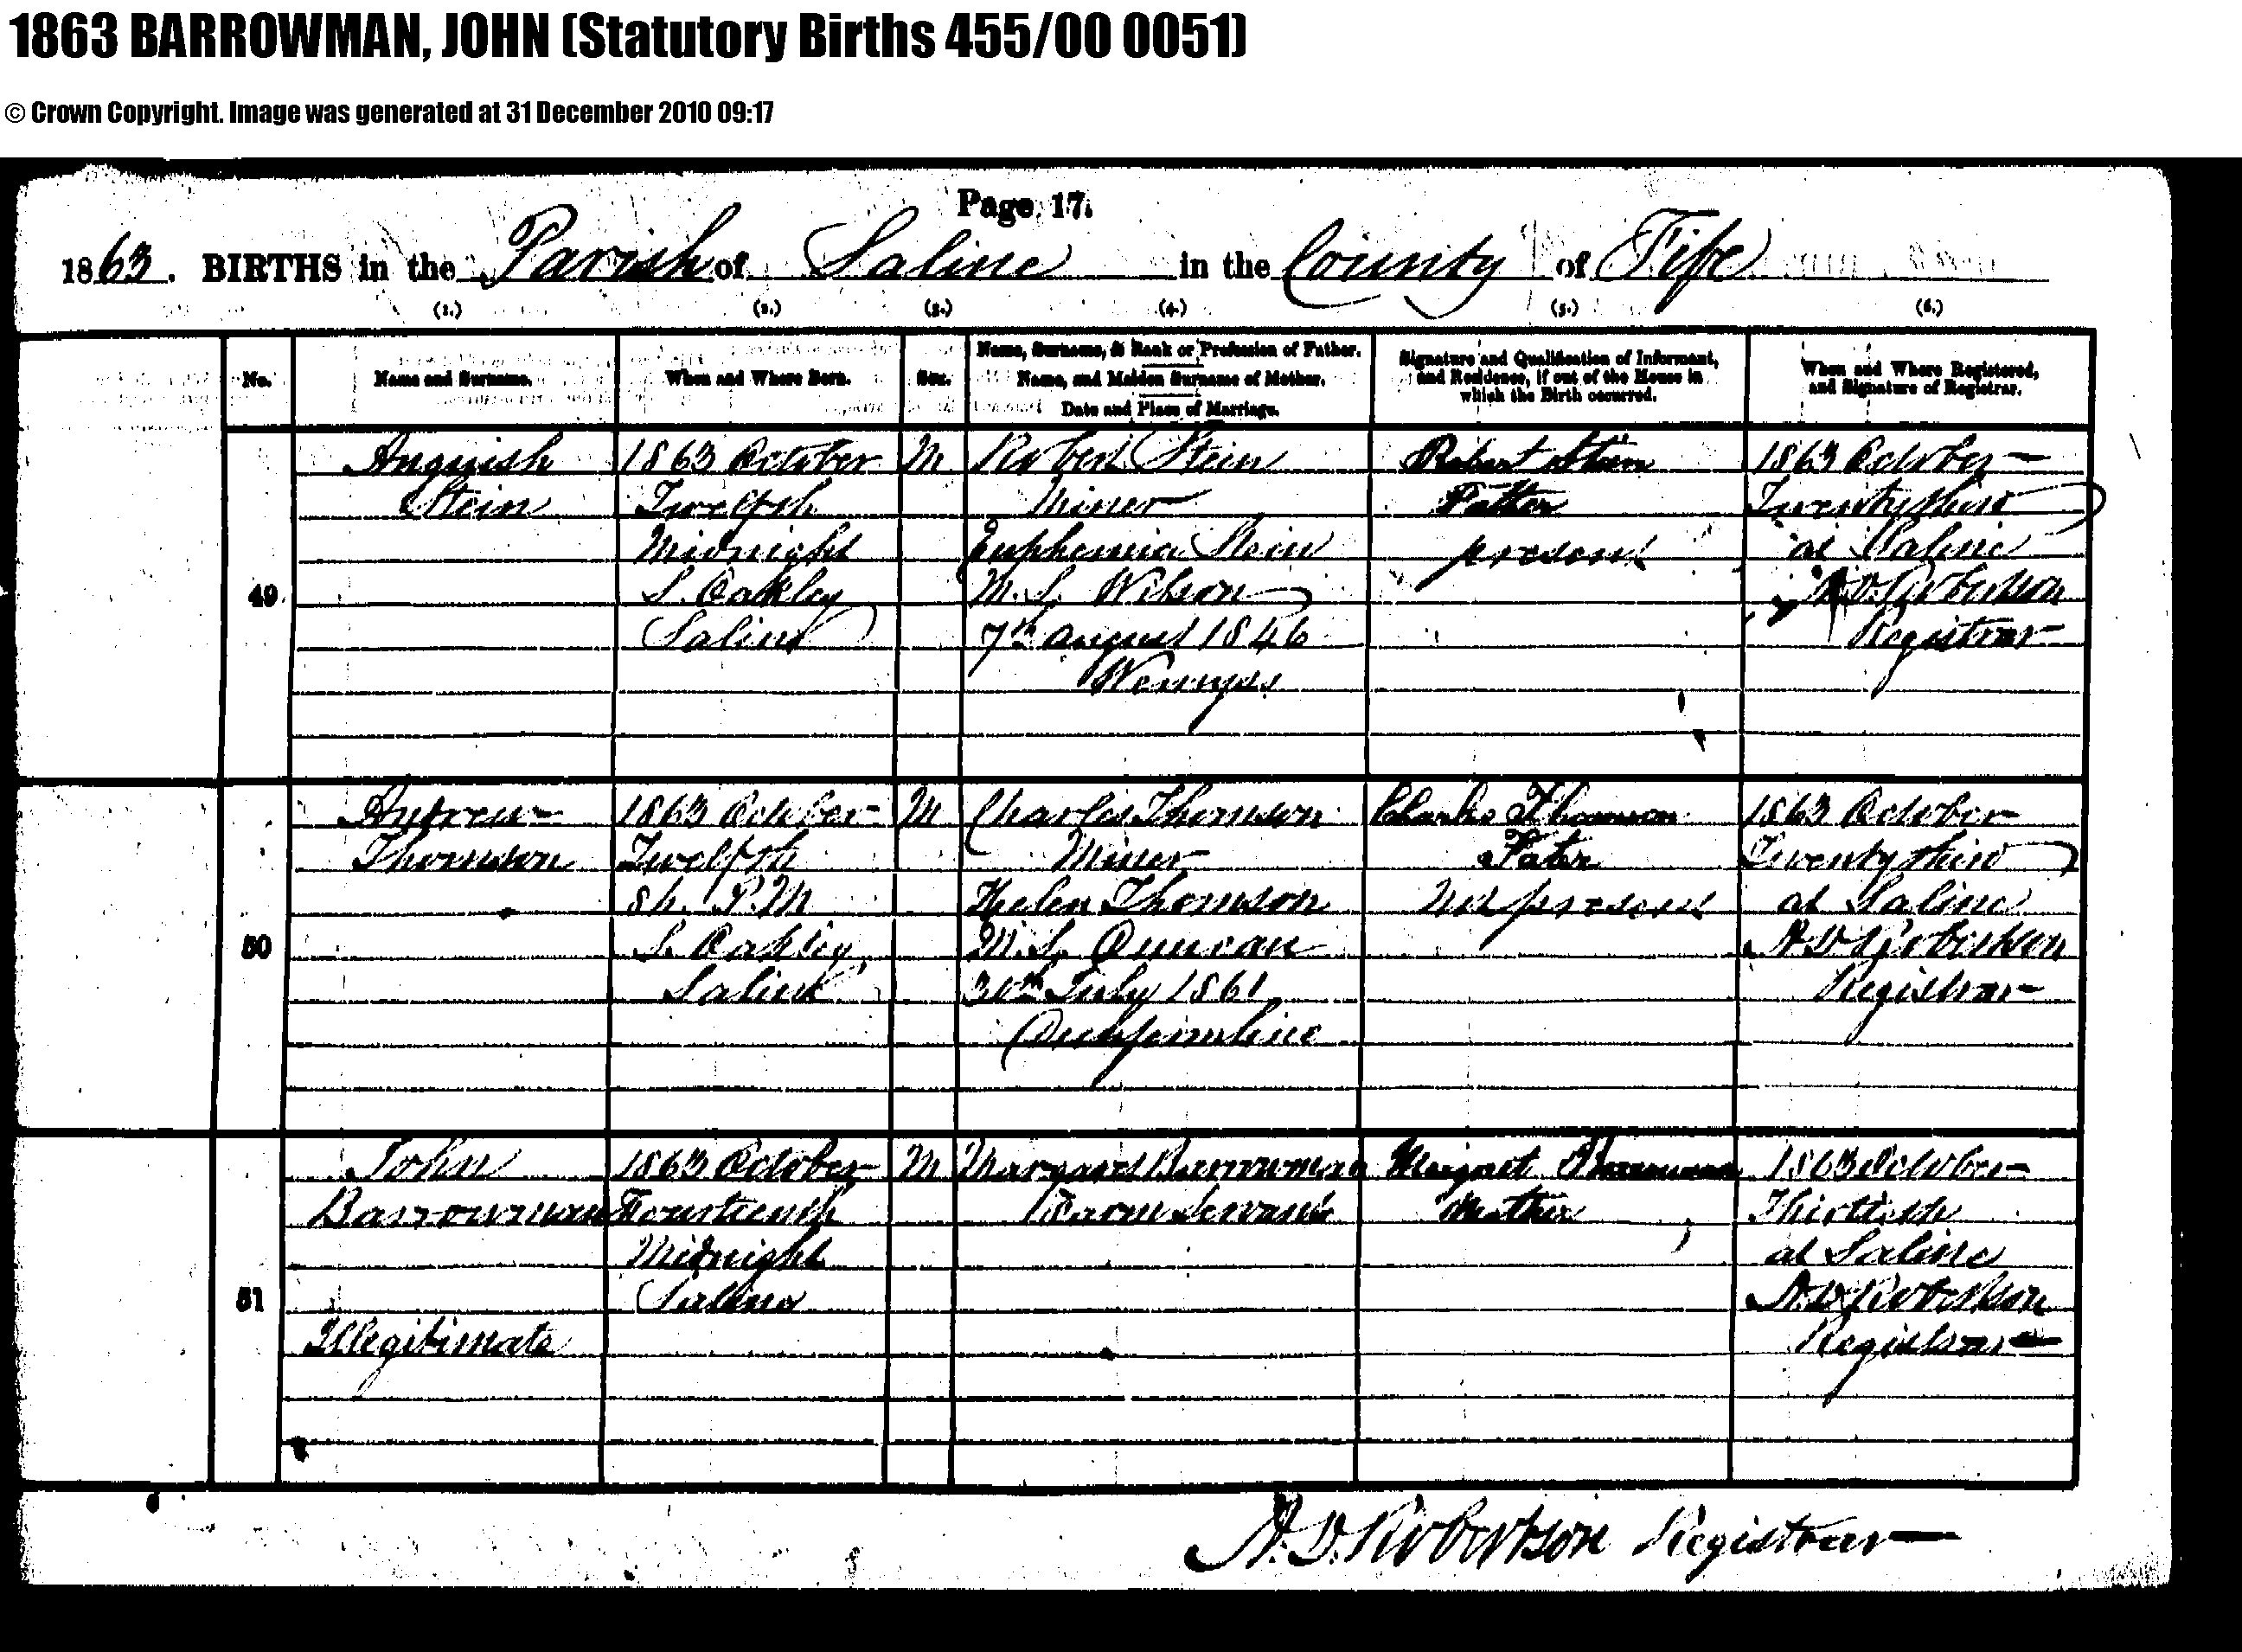 1863 BARROWMAN, JOHN (Statutory Births 455/00 0051)
© Crown Copyright. Image was generated at 31 December 2010 09:17
Page 17.
1863. BIRTHS in the Parish of Saline in the County of Fife
(1.) (2.) (3.) (4.) (5.) (6.)
No.
Name and Surname.
When and Where Born.
Sex.
Name, Surname, & Rank or Profession of Father.
Name, and Maiden Surname of Mother.
Date and Place of Marriage.
Signature and Qualification of Informant,
and Residence, if out of the House in
which the Birth occurred.
When and Where Registered,
and Signature of Registrar.
49
Anguish
Stein
1863 October
Twelfth
Midnight
S. Oakley
Saline
M
Robert Stein
Miner
Euphemia Stein
M.S. Wilson
7th August 1846
Wemyss
Robert Stein
Father
present
1863 October
Twenty third
at Saline
A. D. Robertson
Registrar
50
Andrew
Thomson
1863 October
Twelfth
8h. P.M
S. Oakley
Saline
M
Charles Thomson
Miner
Helen Thomson
M.S. Duncan
30th July 1861
Dunfermline
Charles Thomson
Father
Not present
1863 October
Twenty third
at Saline
A D Robertson
Registrar
51
John
Barrowman
Illegitimate
1863 October
Fourteenth
Midnight
Saline
M
Margaret Barrowman
Farm Servant
Margaret Barrowman
Mother
1863 October
Thirtieth
at Saline
A. D. Robertson
Registrar
A. D. Robertson Registrar